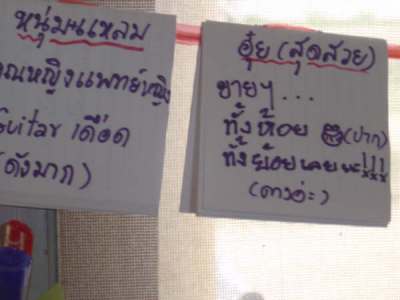 หนุ่มแหลม
คุณหญิงแพทย์หญิง
Guitar เดือด
(ดังมาก)
อุ้ย (สุดสวย)
ขายๆ...
ทั้งห้อย (ปาก)
ทั้งย้อยเลยนะ!!!